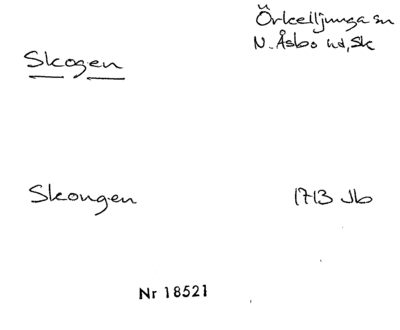 Örkelljunga sn
N. Åsbo hd, Sk
Skogen
Skongen 1713 Jb
Nr 18521